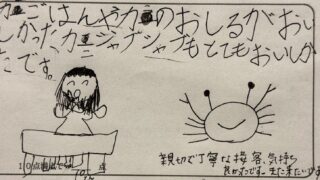 かにごはんやカニのおしるがおい
しかった。カニジャナシャブもとてもおいしか
たです。
10点満点で 点
親切で丁寧な接客、気持ち
良かったです。また来たいです